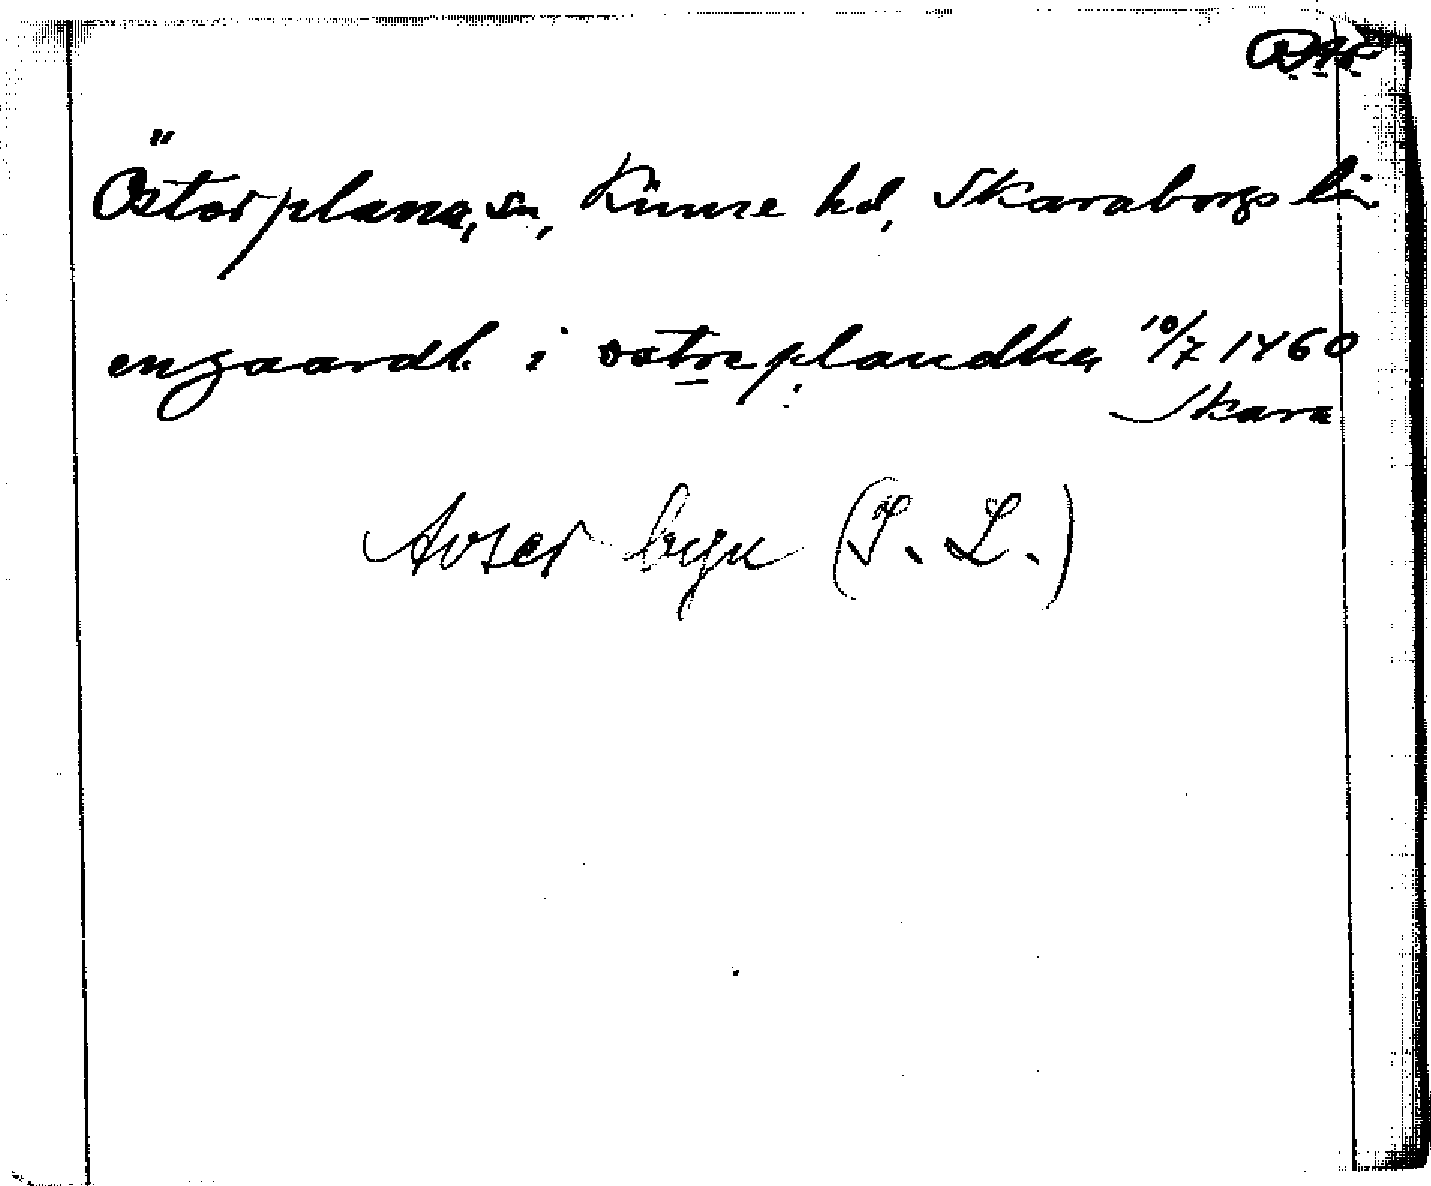 Österplana, sn, Kinne hd, Skaraborgs län
engaardh i östreplandha 10/7 1460
Skara
Avser byn (I. L.)